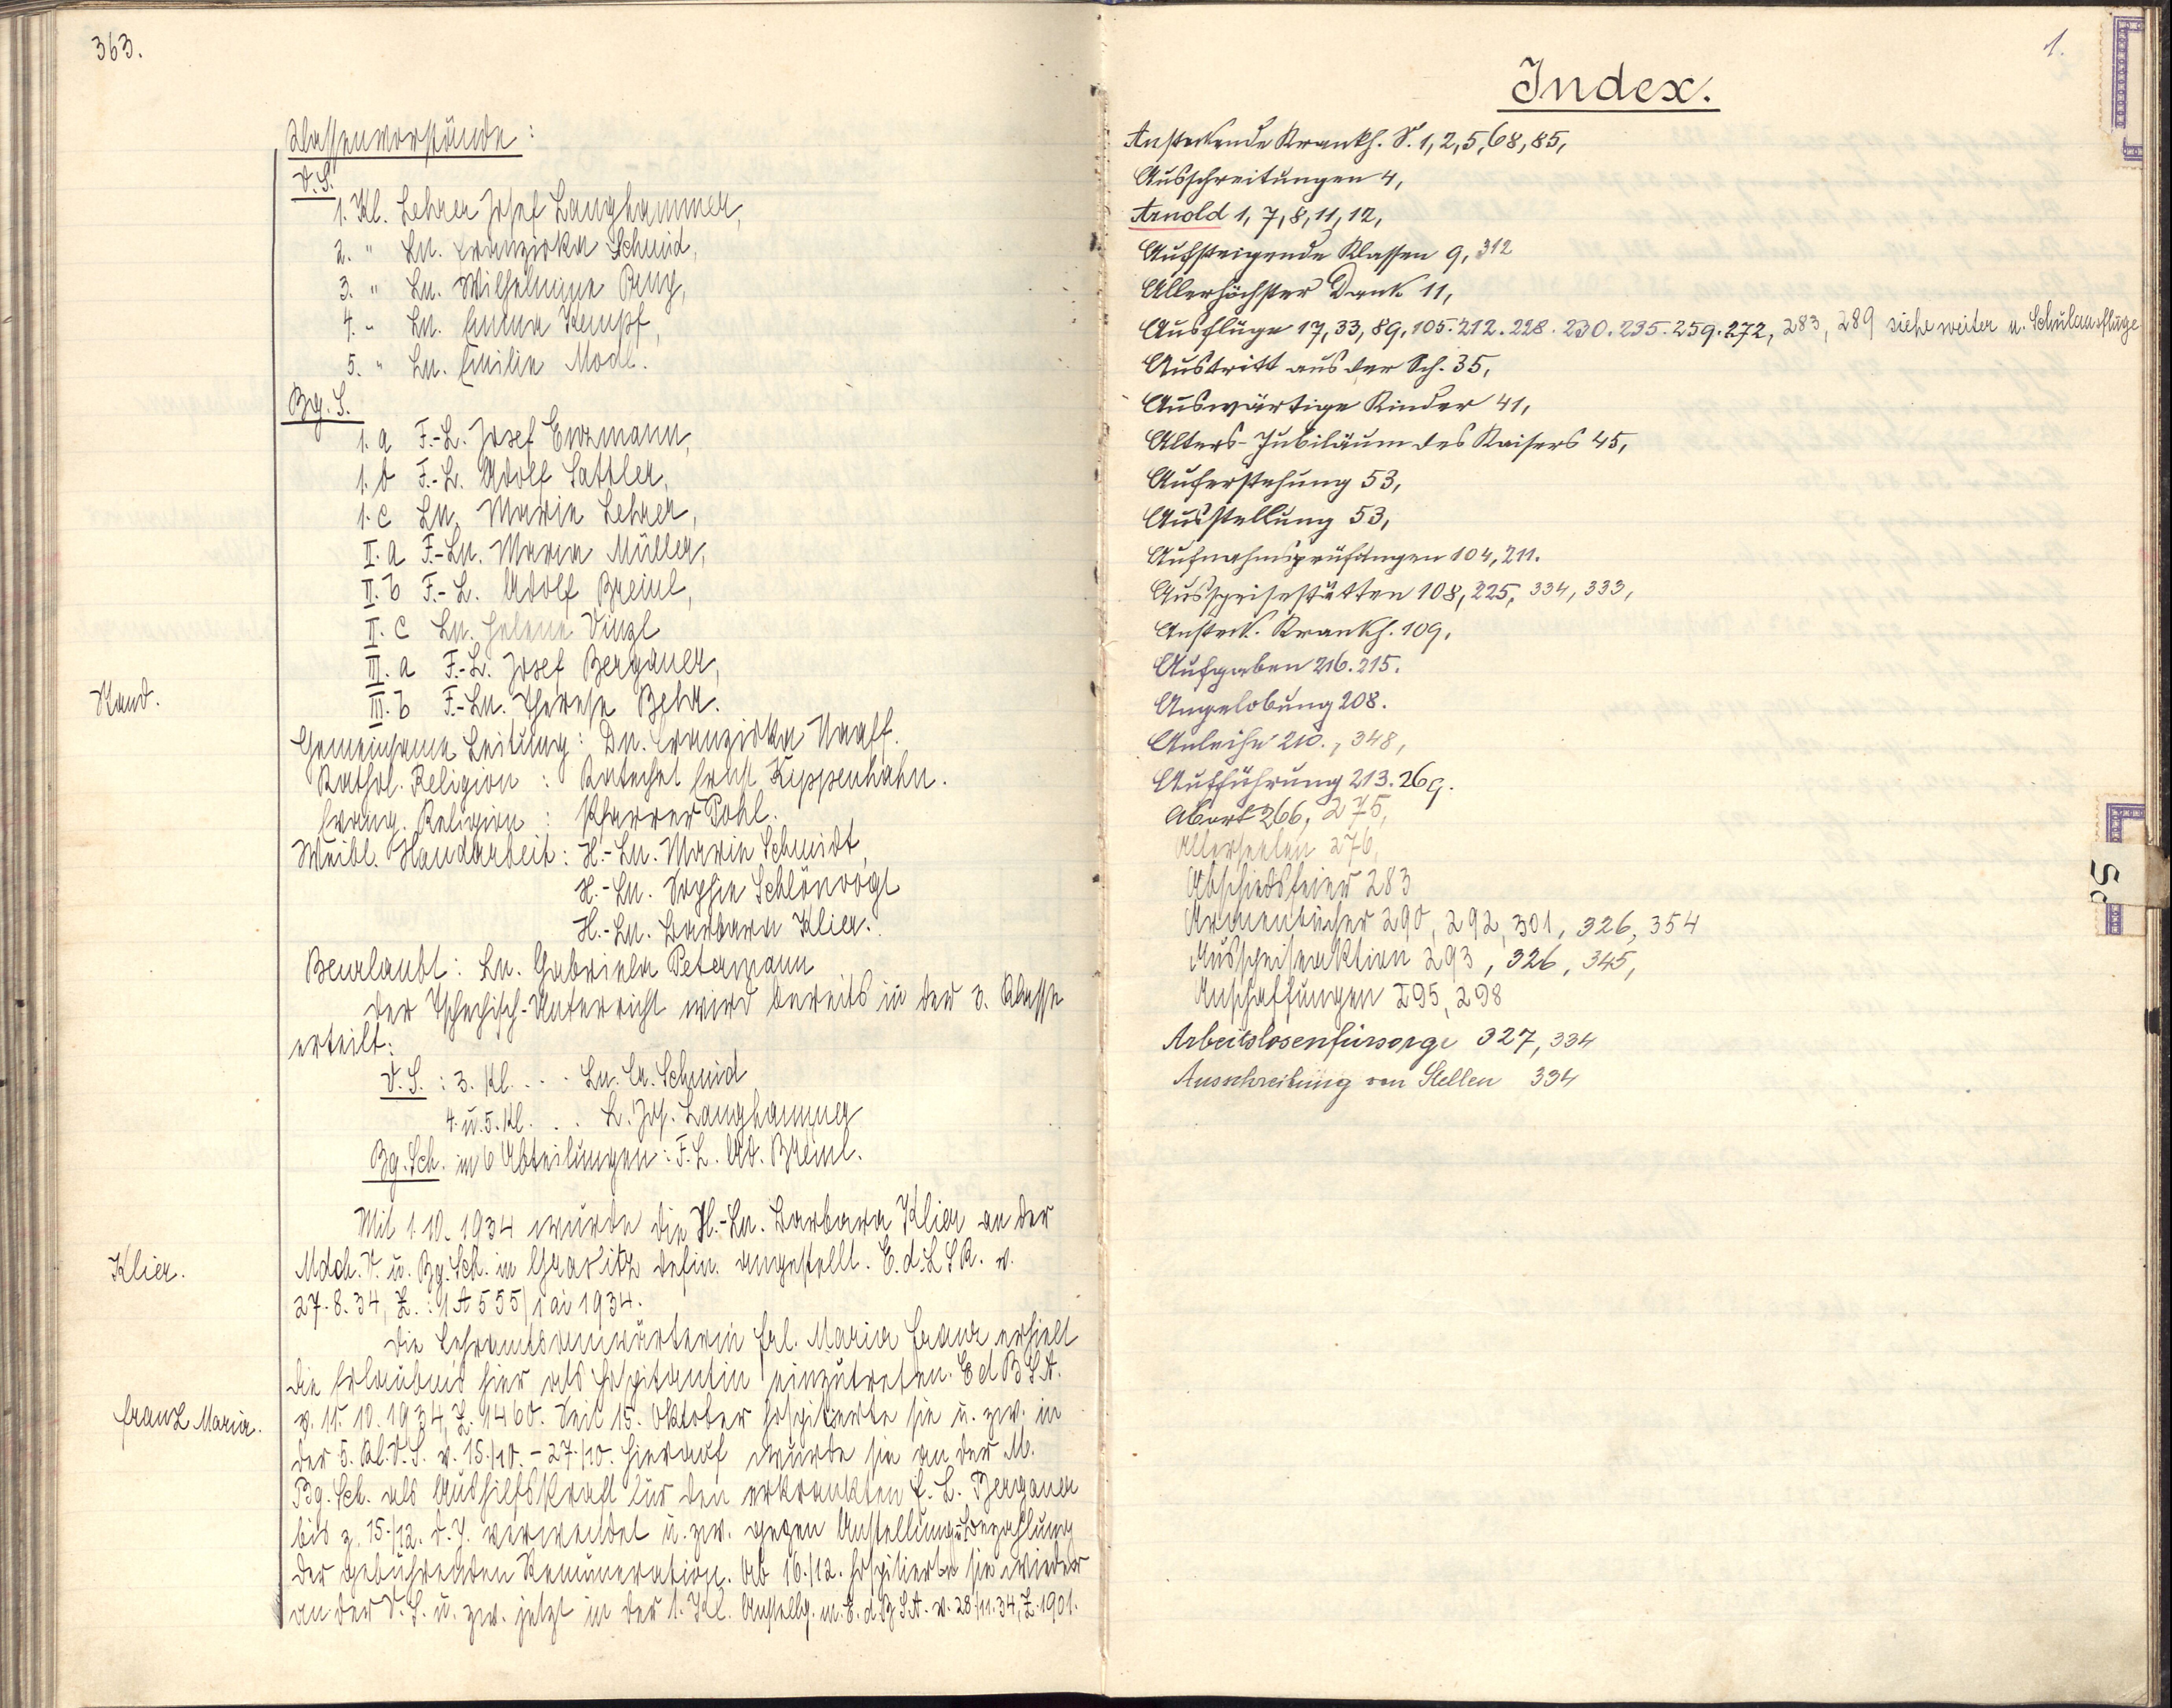 363.
Klassenvorstände:
V.S.
1. Kl. Lehrer Josef Langhammer,
2. " Ln. Franziska Schmid,
3. " Ln. Wilhelmine
4. " Ln. Emma Kempf,
5. " Ln. Emilie Modl.
Bg. S.
1. a F.-L. Josef Enzmann,
1. b F.-L. Adolf Sattler,
1. c Ln. Marie Lehrer,
II. a F.-Ln. Maria Müller,
II. b F.-L. Adolf Breinl,
II. c Ln. Helene Vinzl
III. a F.-L. Josef Bergauer,
Stand.
III. b F.-Ln. Therese Behr.
Gemeinsame Leitung: Dn. Franziska Naaff.
Kathol. Religion : Katechet Ernst Kippenhahn.
Evang. Religion : Pfarrer Pohl.
Weibl. Handarbeit: H.-Ln. Marie Schmidt,
H.-Ln. Sophie Schlönvogt
H.-Ln. Barbara Klier.
Beurlaubt: Ln. Gabriela Petermann
Der Tschechisch-Unterricht wird bereits in der 3. Klasse
erteilt:
V. S. : 3. Kl. . . . Ln. Schmid
4. u. 5. Kl. . . . L. Jos. Langhammer
Bg. Sch. in 6 Abteilungen: F. L. Ad. Breinl.
Mit 1. 10. 1934 wurde die H.-Ln. Barbara Klier an der
Klier.
Mdch. V. u. Bg. Sch. in Graslitz defin. angestellt. E. d. L S R. v.
27. 8. 34, Z.: 1 A 555/1 ai 1934.
Die Lehramtsanwärterin Frl. Maria Franz erhielt
die Erlaubnis hier als Hospitantin einzutreten. E d B S A.
Franz Maria.
v. 11. 10. 1934, Z. 1460. Seit 15. Oktober hospitierte sie u. zw. in
der 5. Kl. V. S. v. 15./10. - 27./10. Hierauf wurde sie an der M.
Bg. Sch. als Aushilfskraft für den erkrankten F. L. Bergauer
bis z. 15./12. d. J. verwendet u. zw. gegen Anstellung u. Bezahlung
der gebührenden Remuneration. Ab 16./12. hospitierte sie wieder
an der V. S. u. zw. jetzt in der 1. Kl. Anstellg. m. E. d. B S A. v. 28./11. 34, Z. 1901.
1.
Index.
Ansteckende Krankh. S. 1, 2, 5, 68, 85,
Ausschreitungen 4,
Arnold 1, 7, 8, 11, 12,
Aufsteigende Klassen 9, 312
Allerhöchster Dank 11,
Ausflüge 17, 33, 89, 105. 212. 228. 230. 235. 259. 272, 283, 289 siehe weiter u. Schulausflüge
Austritt aus der Sch. 35,
Auswärtige Kinder 41,
Alters-Jubiläum des Kaisers 45,
Auferstehung 53,
Ausstellung 53,
Aufnahmsprüfungen 104, 211.
Ausspeisestätten 108, 225, 334, 333,
Ansteck. Krankh. 109,
Aufgaben 216. 215.
Angelobung 208.
Anleihe 210., 348,
Aufführung 213. 269.
Abort 266, 275,
Allerseelen 276,
Abschiedsfeier 283
Armenbücher 290, 292, 301, 326, 354
Ausspeiseaktion 293, 326, 345,
Anschaffungen 295, 298
Arbeitslosenfürsorge 327, 334
Ausschreibung von Stellen 334